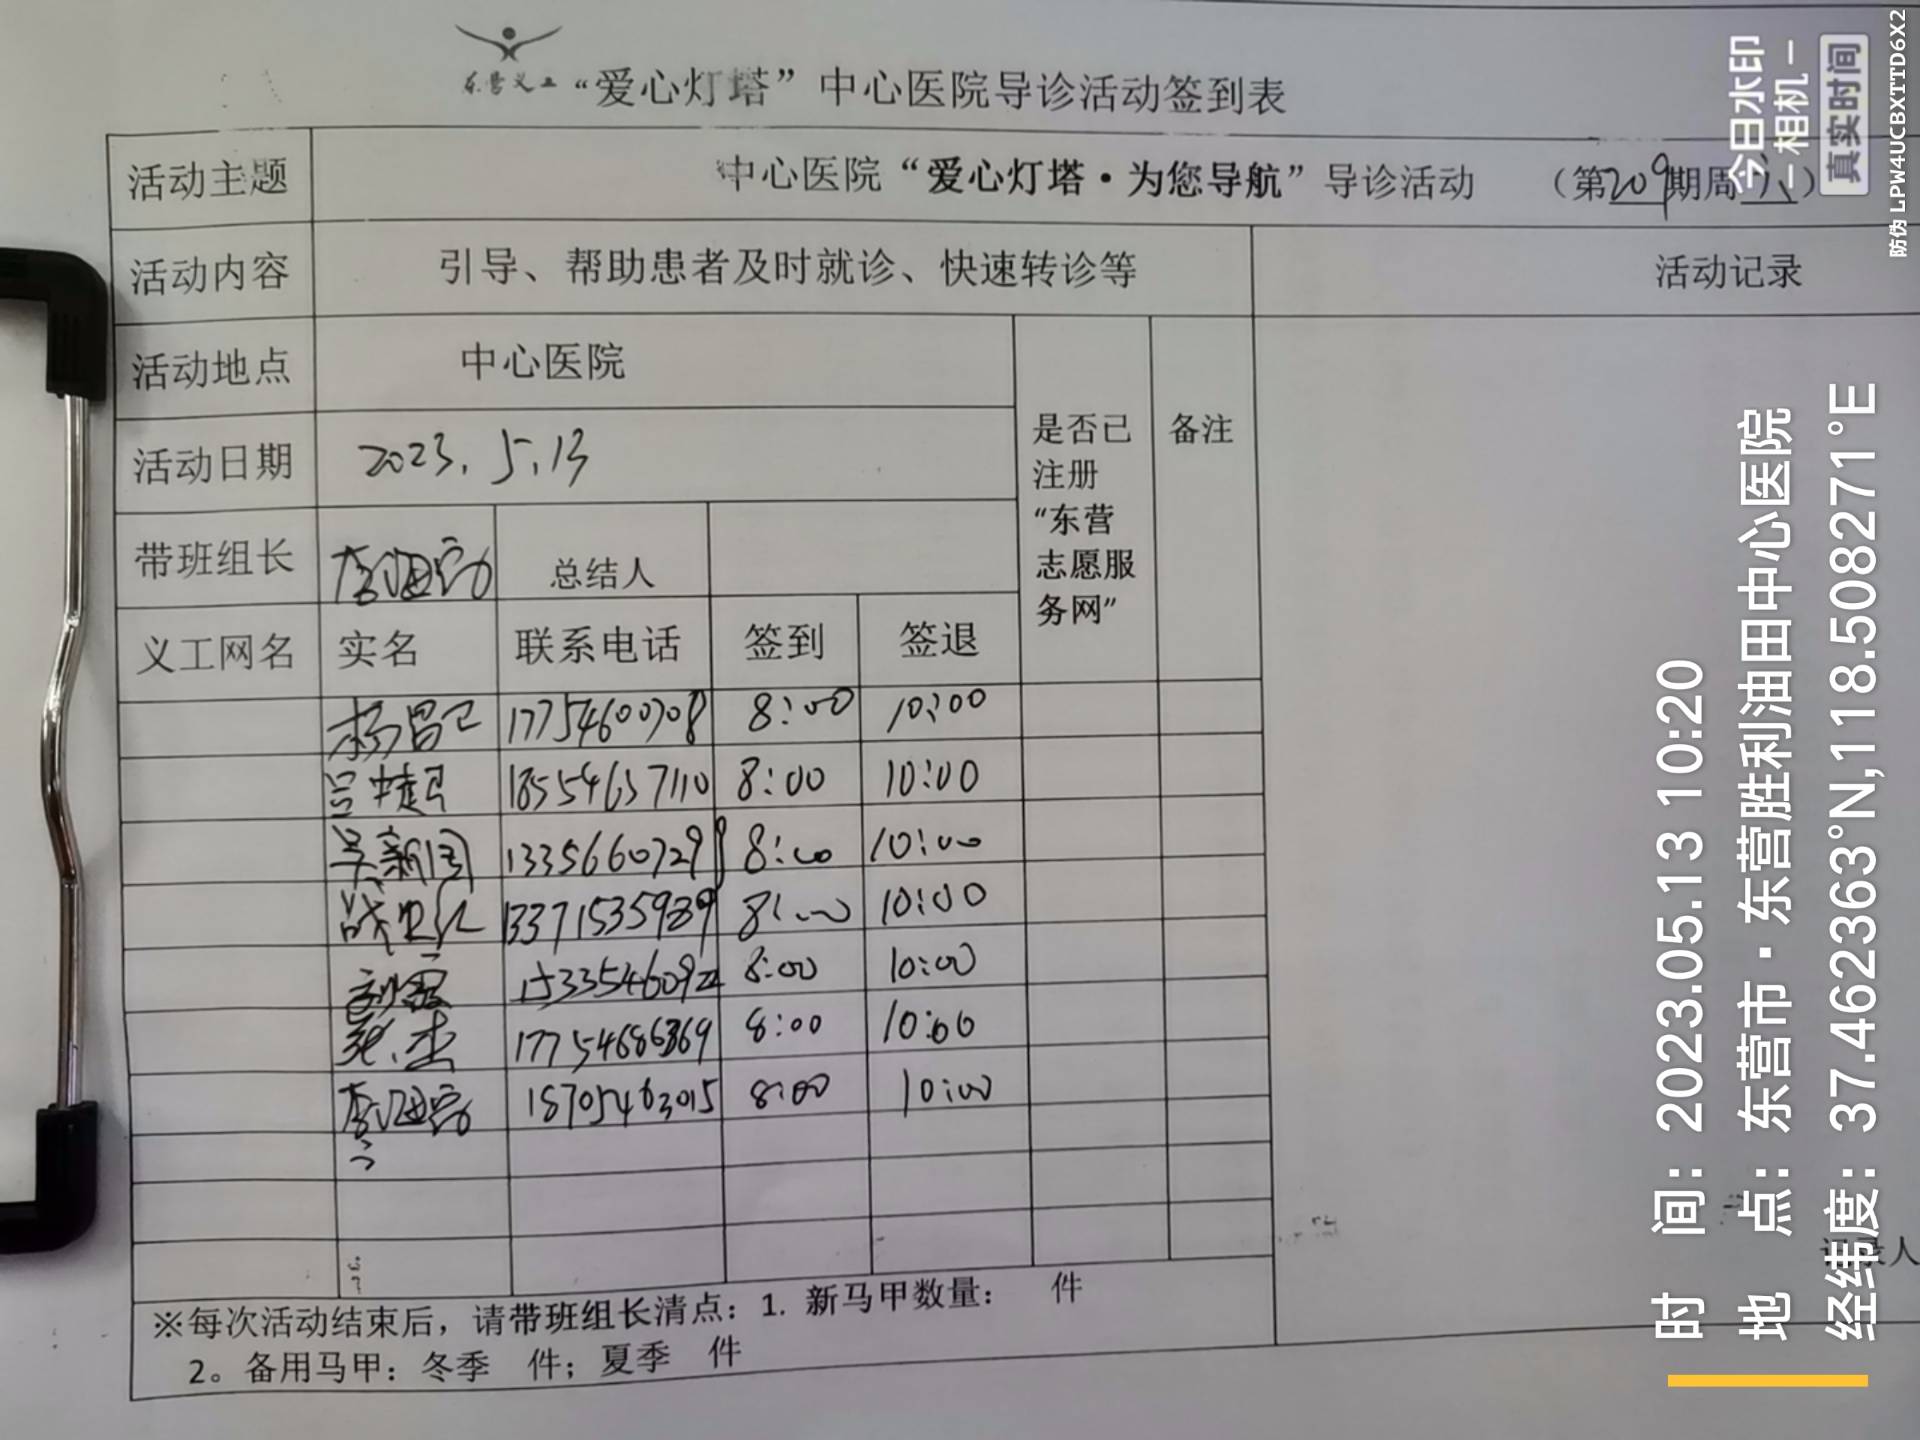 东营义工“爱心灯塔”中心医院导诊活动签到表
活动主题 中心医院“爱心灯塔·为您导航”导诊活动 （第209期周六）
活动内容 引导、帮助患者及时就诊、快速转诊等 活动记录
活动地点 中心医院
是否已注册“东营志愿服务网” 备注
活动日期 2023.5.13
带班组长 总结人
义工网名 实名 联系电话 签到 签退
杨昌卫 17754600708 8:00 10:00
18554637110 8:00 10:00
吴新国 8:00 10:00
13371535939 8:00 10:00
刘霞 8:00 10:00
张杰 17754686369 8:00 10:00
18705463015 8:00 10:00
※每次活动结束后，请带班组长清点：1. 新马甲数量： 件
2。备用马甲：冬季 件；夏季 件
记录人
今日水印
相机
真实时间
防伪 LPW4UCBXTTD6X2
时 间：2023.05.13 10:20
地 点：东营市·东营胜利油田中心医院
经纬度：37.462363°N,118.508271°E